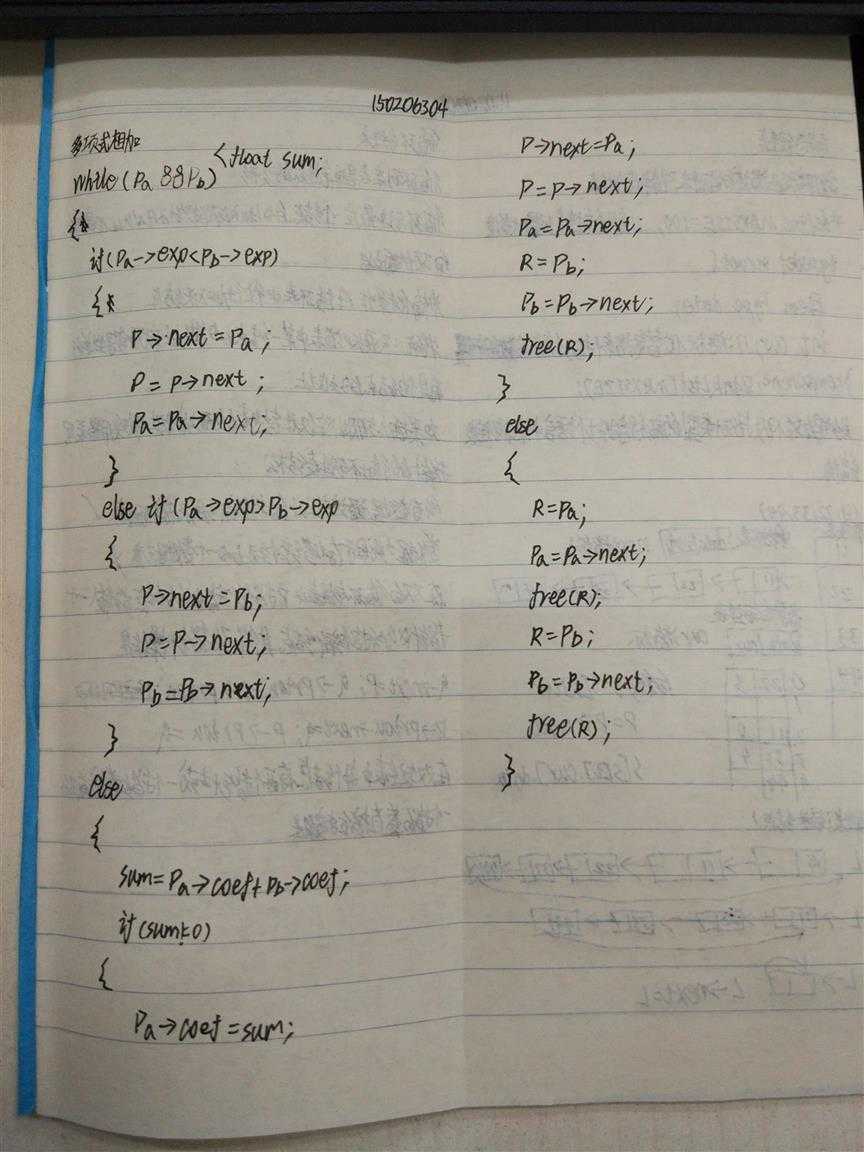 150206304
多项式相加
<float sum;
while(Pa && Pb)
{
if(Pa->exp<Pb->exp)
{
P->next=Pa;
P=P->next;
Pa=Pa->next;
}
else if(Pa->exp>Pb->exp
{
P->next=Pb;
P=P->next;
Pb=Pb->next;
}
else
{
sum=Pa->coef+Pb->coef;
if(sum!=0)
{
Pa->coef=sum;
P->next=Pa;
P=P->next;
Pa=Pa->next;
R=Pb;
Pb=Pb->next;
free(R);
}
else
{
R=Pa;
Pa=Pa->next;
free(R);
R=Pb;
Pb=Pb->next;
free(R);
}